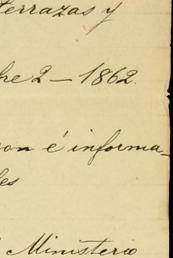 Terrazas y
bre 2 - 1862.
ron é informa-
les
Ministerio